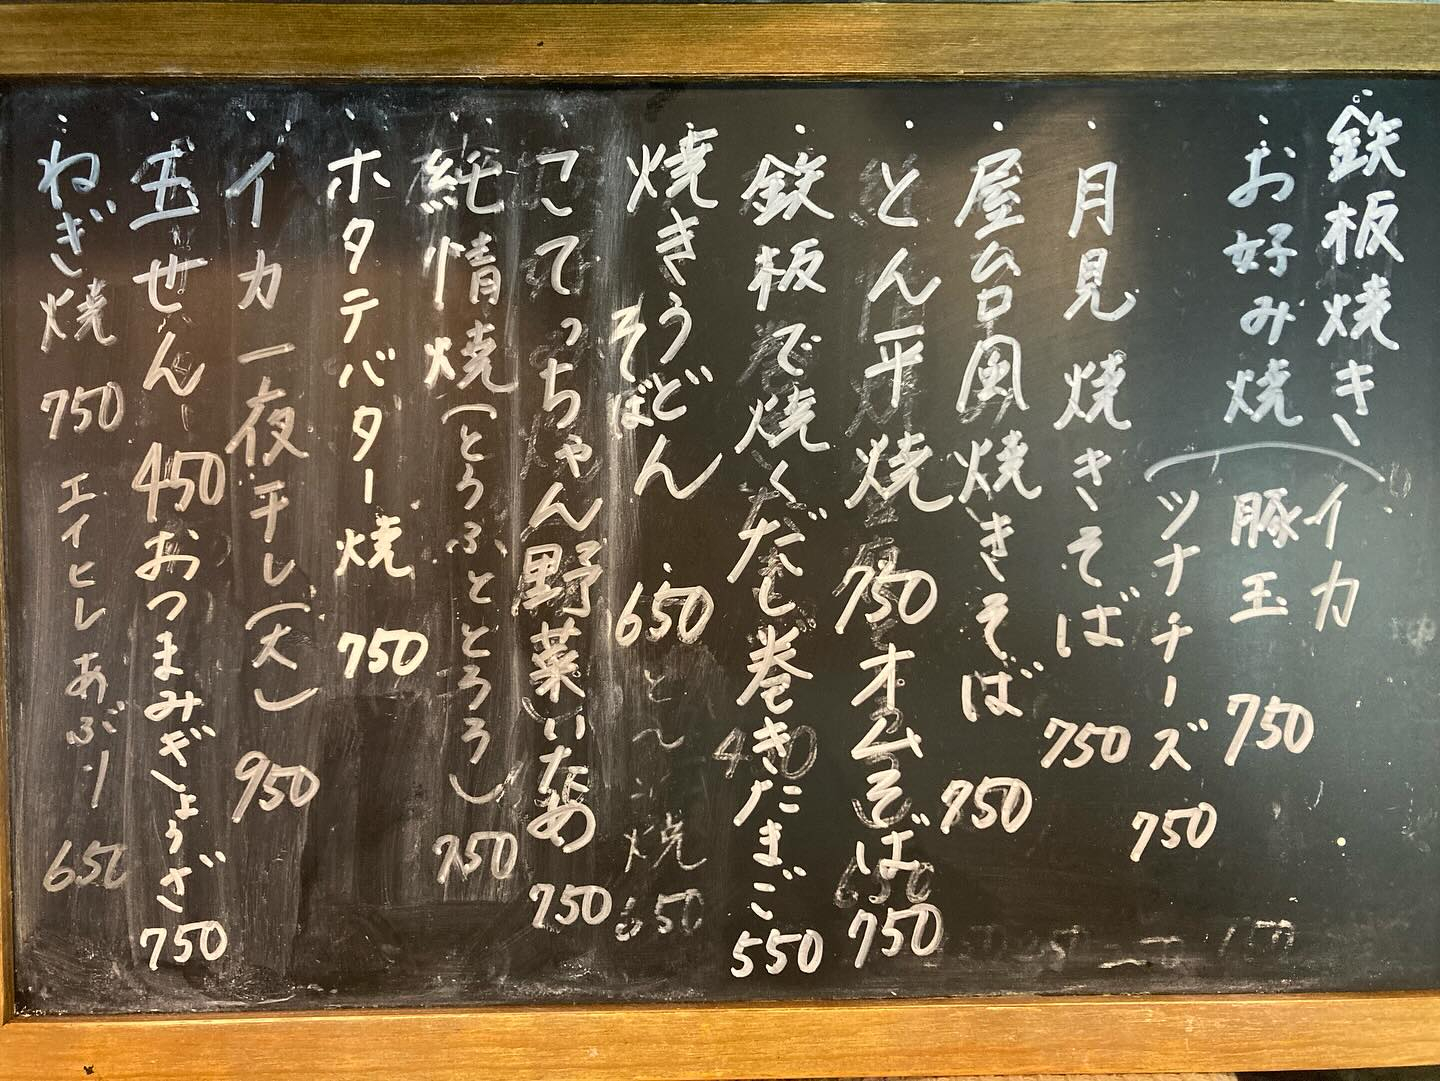 鉄板焼き
お好み焼
イカ
豚玉 750
ツナチーズ 750
月見焼きそば 750
屋台風焼きそば 750
とん平焼 750 オムそば 750
鉄板で焼くだし巻きたまご 550
焼きうどん
そば
650
焼 650
こてっちゃん野菜いため 750
純情焼(とうふととろろ) 750
ホタテバター焼 750
イカ一夜干し(大) 950
玉せん 450 おつまみぎょうざ 750
ねぎ焼 750 エイヒレあぶり 650